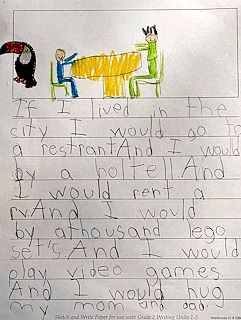 If I lived in the
city I would go to
a restrant And I would
by a holtell And
I would rent a
And I would
by athousand lego
set's And I would
play video games
And I would hug
my mom and dad.
Sketch and Write Paper for use with Grade 2 Writing Units 1-3